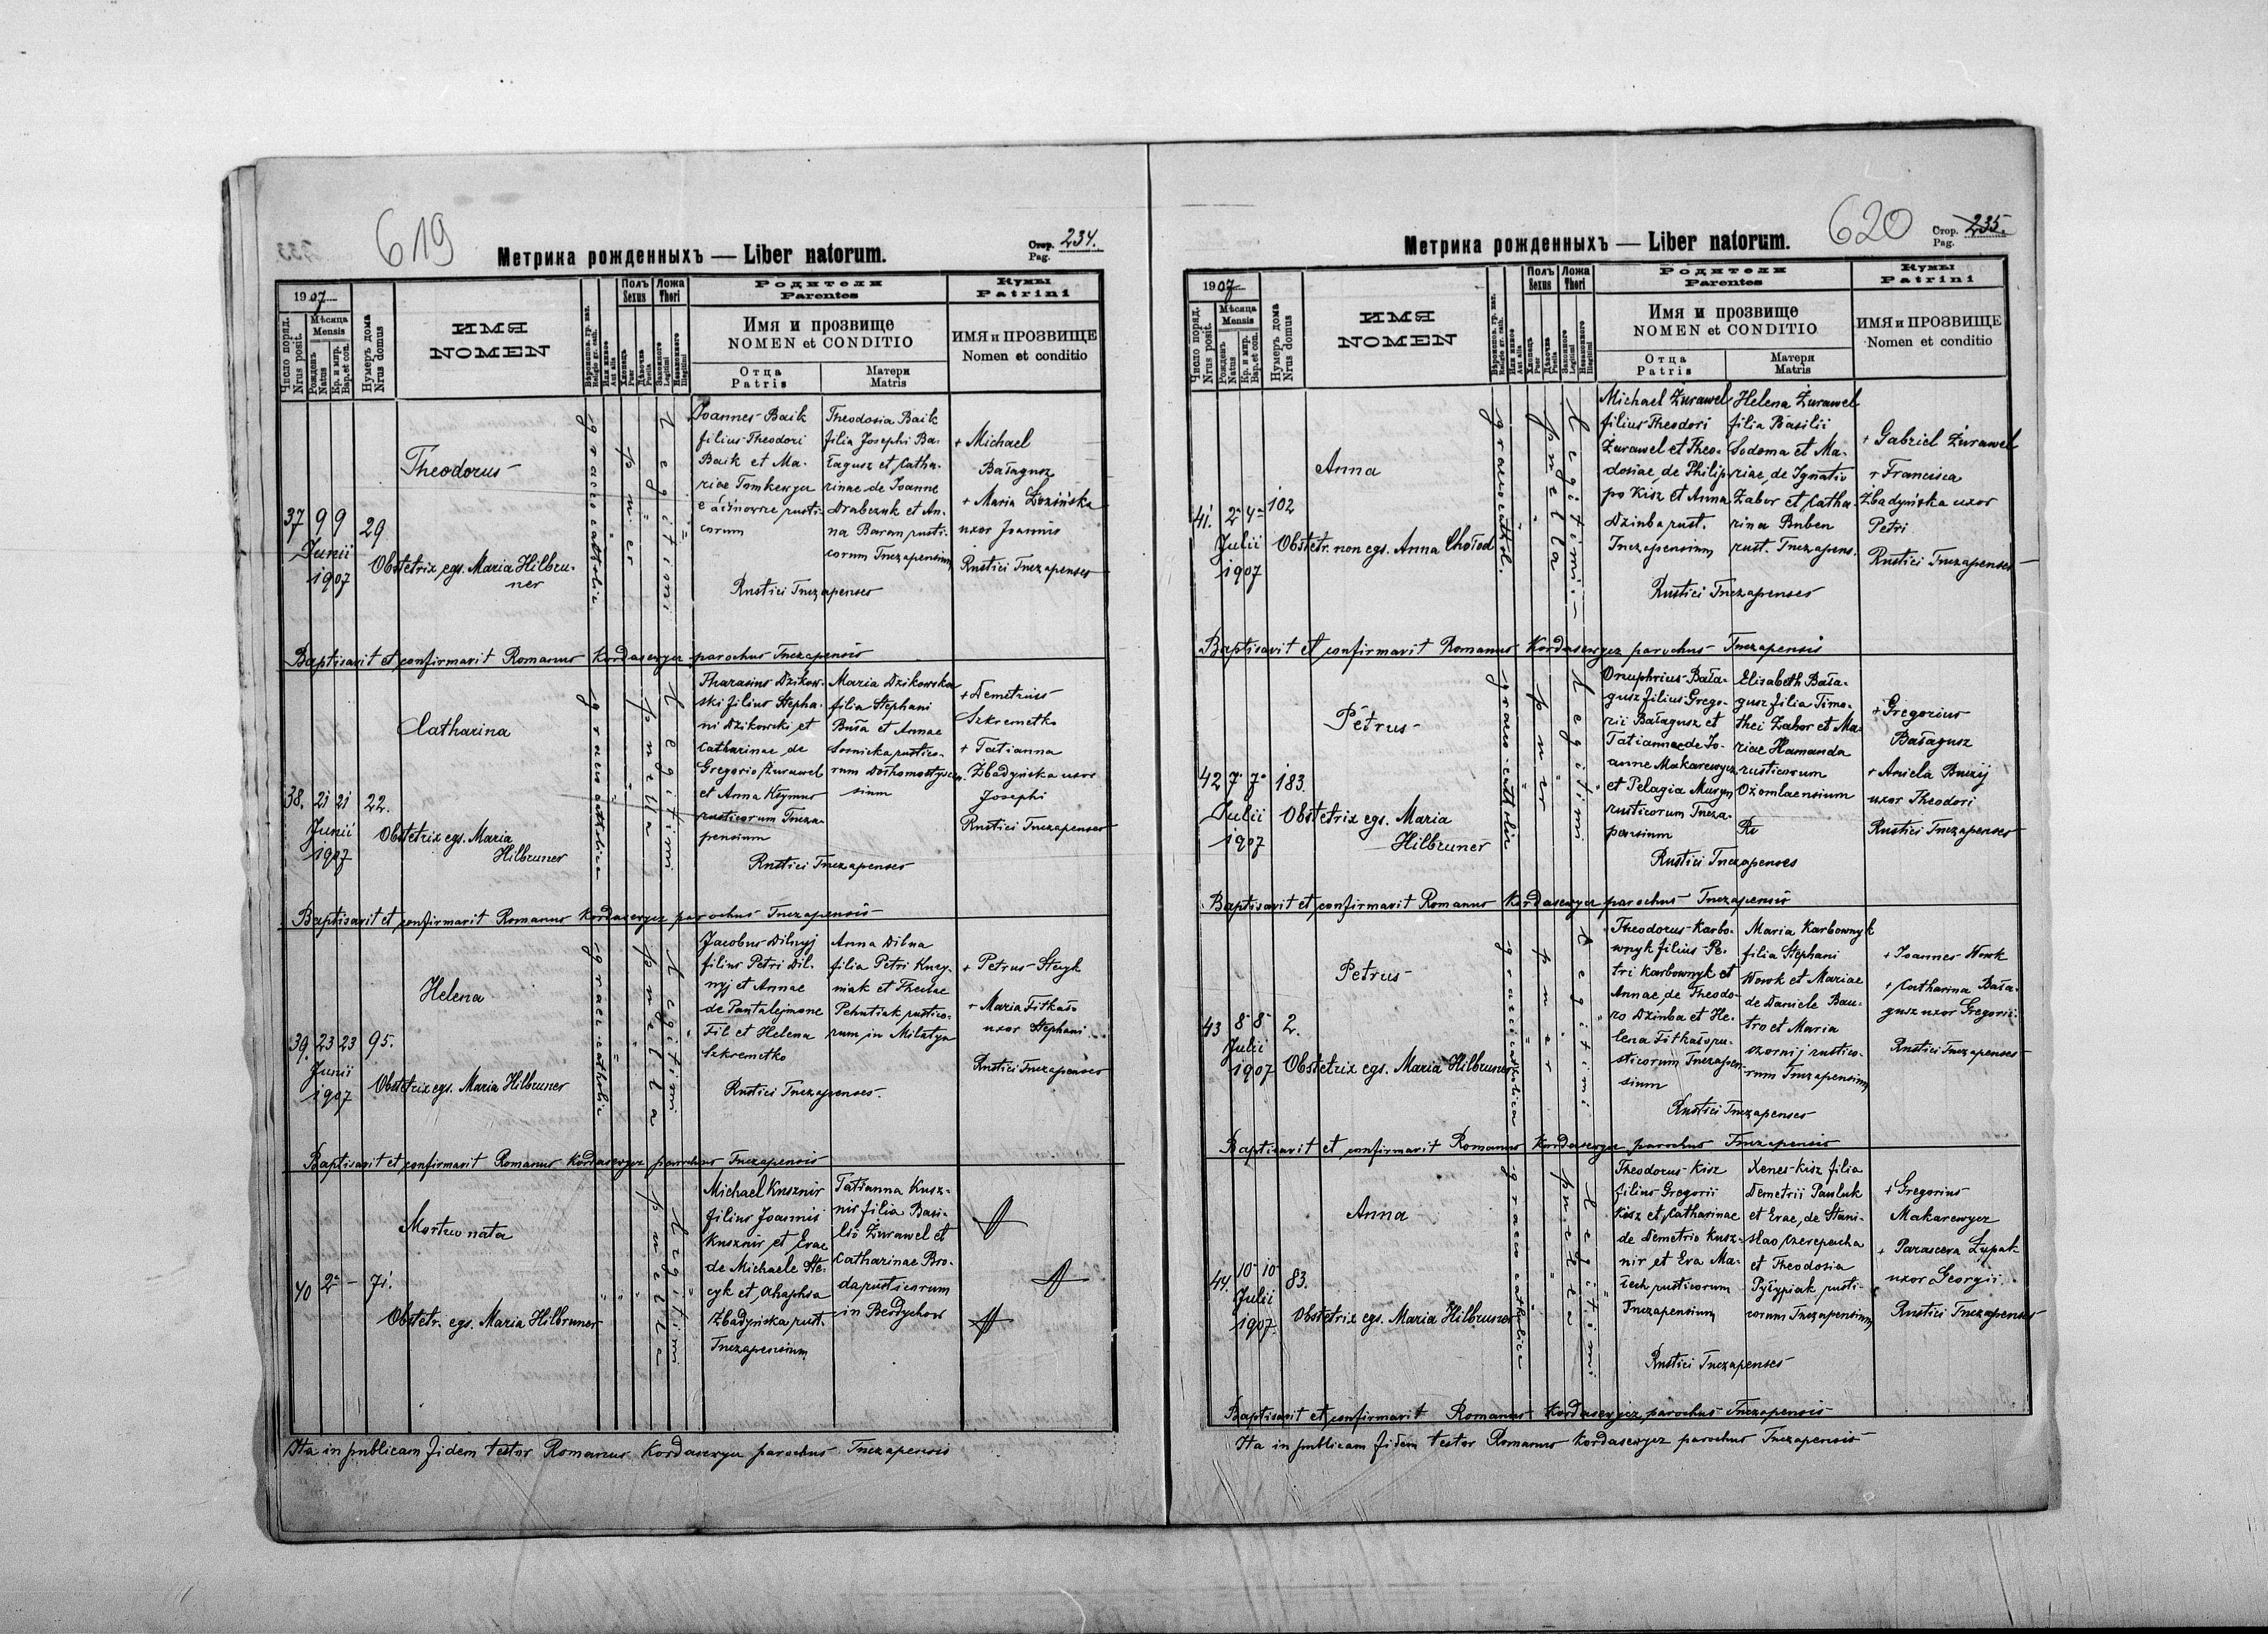 619
Метрика рожденныхъ — Liber natorum.
Стор. Pag. 234.
1907
Число поряд. Nrus posit.
Мѣсяца Mensis
Рожденъ Natus
Кр. и мѵр. Bap. et con.
Нумеръ дома Nrus domus
ИМЯ
NOMEN
Полъ Sexus
Хлопець Puer
Дѣвочка Puella
Ложа Thori
Законного Legitimi
Незаконного Illegitimi
Родители
Parentes
Имя и прозвище
NOMEN et CONDITIO
Отца Patris
Матери Matris
Кумы
Patrini
ИМЯ и ПРОЗВИЩЕ
Nomen et conditio
37 9 9 29
Junii
1907
Theodorus
Obstetrix egs. Maria Hilbru-
ner
graeco catholic
puer
Legitimi
Joannes Baik
filius Theodori
Baik et Ma-
riae Tymkewycz
rusti-
corum
Theodosia Baik
filia Josephi Ba-
łagusz et Catha-
rinae de Joanne
Drabczuk et An-
na Baran rusti-
corum Tuczapensium
Rustici Tuczapenses
+ Michael
Bałagusz
+ Maria Łozińska
uxor Joannis
Rustici Tuczapenses
Baptisavit et confirmavit Romanus Kordasewycz parochus Tuczapensis
38. 21 21 22.
Junii
1907
Catharina
Obstetrix egs. Maria
Hilbruner
graeco catholic
puella
Legitimi
Tharasius Dzikow-
ski filius Stepha-
ni Dzikowski et
Catharinae de
Gregorio Żurawel
et Anna Ksymus
rusticorum Tucza-
pensium
Maria Dzikowska
filia Stephani
Buła et Annae
Sosnicka rustico-
rum
sium
Rustici Tuczapenses
+ Demetrius
Szkremetko
+ Tatianna
Zbadyńska uxor
Josephi
Rustici Tuczapenses
Baptisavit et confirmavit Romanus Kordasewycz parochus Tuczapensis
39. 23 23 95.
Junii
1907
Helena
Obstetrix egs. Maria Hilbruner
graec. cathol.
puella
Legitimi
Jacobus Dilnyj
filius Petri Dil-
nyj et Annae
de Pantalejmone
Fil et Helena
Szkremetko
Anna Dilna
filia Petri Kucy-
niak et Theclae
Pehutiak rustico-
rum in Milatyn
Rustici Tuczapenses.
+ Petrus Stecyk
+ Maria Fitkało
uxor Stephani
Rustici Tuczapenses
Baptisavit et confirmavit Romanus Kordasewycz parochus Tuczapensis
40 2 — 71.
Mortuo nata
Obstetr. egs. Maria Hilbruner
puella
Legitimi
Michael Kusznir
filius Joannis
Kusznir et Evae
de Michaele Ste-
cyk et Ahaphia
Zbadyńska rust.
Tuczapensium
Tatianna Kusz-
nir filia Basi-
lii Żurawel et
Catharinae Bro-
da rusticorum
in Berdychow
Ita in publicam fidem testor Romanus Kordasewycz parochus Tuczapensis
620
Метрика рожденныхъ — Liber natorum.
Стор. Pag. 235.
1907
Число поряд. Nrus posit.
Мѣсяца Mensis
Рожденъ Natus
Кр. и мѵр. Bap. et con.
Нумеръ дома Nrus domus
ИМЯ
NOMEN
Полъ Sexus
Хлопець Puer
Дѣвочка Puella
Ложа Thori
Законного Legitimi
Незаконного Illegitimi
Родители
Parentes
Имя и прозвище
NOMEN et CONDITIO
Отца Patris
Матери Matris
Кумы
Patrini
ИМЯ и ПРОЗВИЩЕ
Nomen et conditio
41. 2 4 102
Julii
1907
Anna
Obstetr. non egs. Anna Chołod
graeco cathol.
puella
Legitimi
Michael Żurawel
filius Theodori
Żurawel et Theo-
dosiae, de Philip-
po Kisz et Anna
Dzinba rust.
Tuczapensium
Helena Żurawel
filia Basilii
Sodoma et Ma-
riae, de Ignatio
Zabor et Catha-
rina Buben
rust. Tuczapens.
Rustici Tuczapenses
+ Gabriel Żurawel
+ Francisca
Zbadyńska uxor
Petri
Rustici Tuczapenses
Baptisavit et confirmavit Romanus Kordasewycz parochus Tuczapensis
42 7 7 183.
Julii
1907
Petrus
Obstetrix egs. Maria
Hilbruner
graeco-catholic
puer
Legitimi
Onuphrius Bała-
gusz filius Grego-
rii Bałagusz et
Tatiannae de Jo-
anne Makarewycz
et Pelagia Muryn
rusticorum Tucza-
pensium
Elisabeth Bała-
gusz filia Timo-
thei Zabor et Ma-
riae Hamanda
rusticorum
Ożomlaensium
Ru
Rustici Tuczapenses
+ Gregorius
Bałagusz
+ Aniela Buczij
uxor Theodori
Rustici Tuczapenses
Baptisavit et confirmavit Romanus Kordasewycz parochus Tuczapensis
43 8 8 2.
Julii
1907
Petrus
Obstetrix egs. Maria Hilbruner
graeci catholica
puer
Legitimi
Theodorus Karbo-
wnyk filius Pe-
tri Karbownyk et
Annae, de Theodo-
ro Dzinba et He-
lena Fitkało ru-
sticorum Tuczapen-
sium
Maria Karbownyk
filia Stephani
Wowk et Mariae
de Daniele Bau-
tro et Maria
czornij rustico-
rum Tuczapensium
Rustici Tuczapenses
+ Joannes Wowk
+ Catharina Bała-
gusz uxor Gregorii
Rustici Tuczapenses
Baptisavit et confirmavit Romanus Kordasewycz parochus Tuczapensis
44. 10 10 83.
Julii
1907.
Anna
Obstetrix egs. Maria Hilbruner
graeco catholica
puella
Legitimi
Theodorus Kisz
filius Gregorii
Kisz et Catharinae
de Demetrio Kusz-
nir et Eva Ma-
lech rusticorum
Tuczapensium
Xenes Kisz filia
Demetrii Pauluk
et Evae, de Stani-
slao Czerepacha
et Theodosia
Pyłypiak rusti-
corum Tuczapensium
Rustici Tuczapenses
+ Gregorius
Makarewycz
+ Parasceva Łupak
uxor Georgii.
Rustici Tuczapenses
Baptisavit et confirmavit Romanus Kordasewycz parochus Tuczapensis
Ita in publicam fidem testor Romanus Kordasewycz parochus Tuczapensis